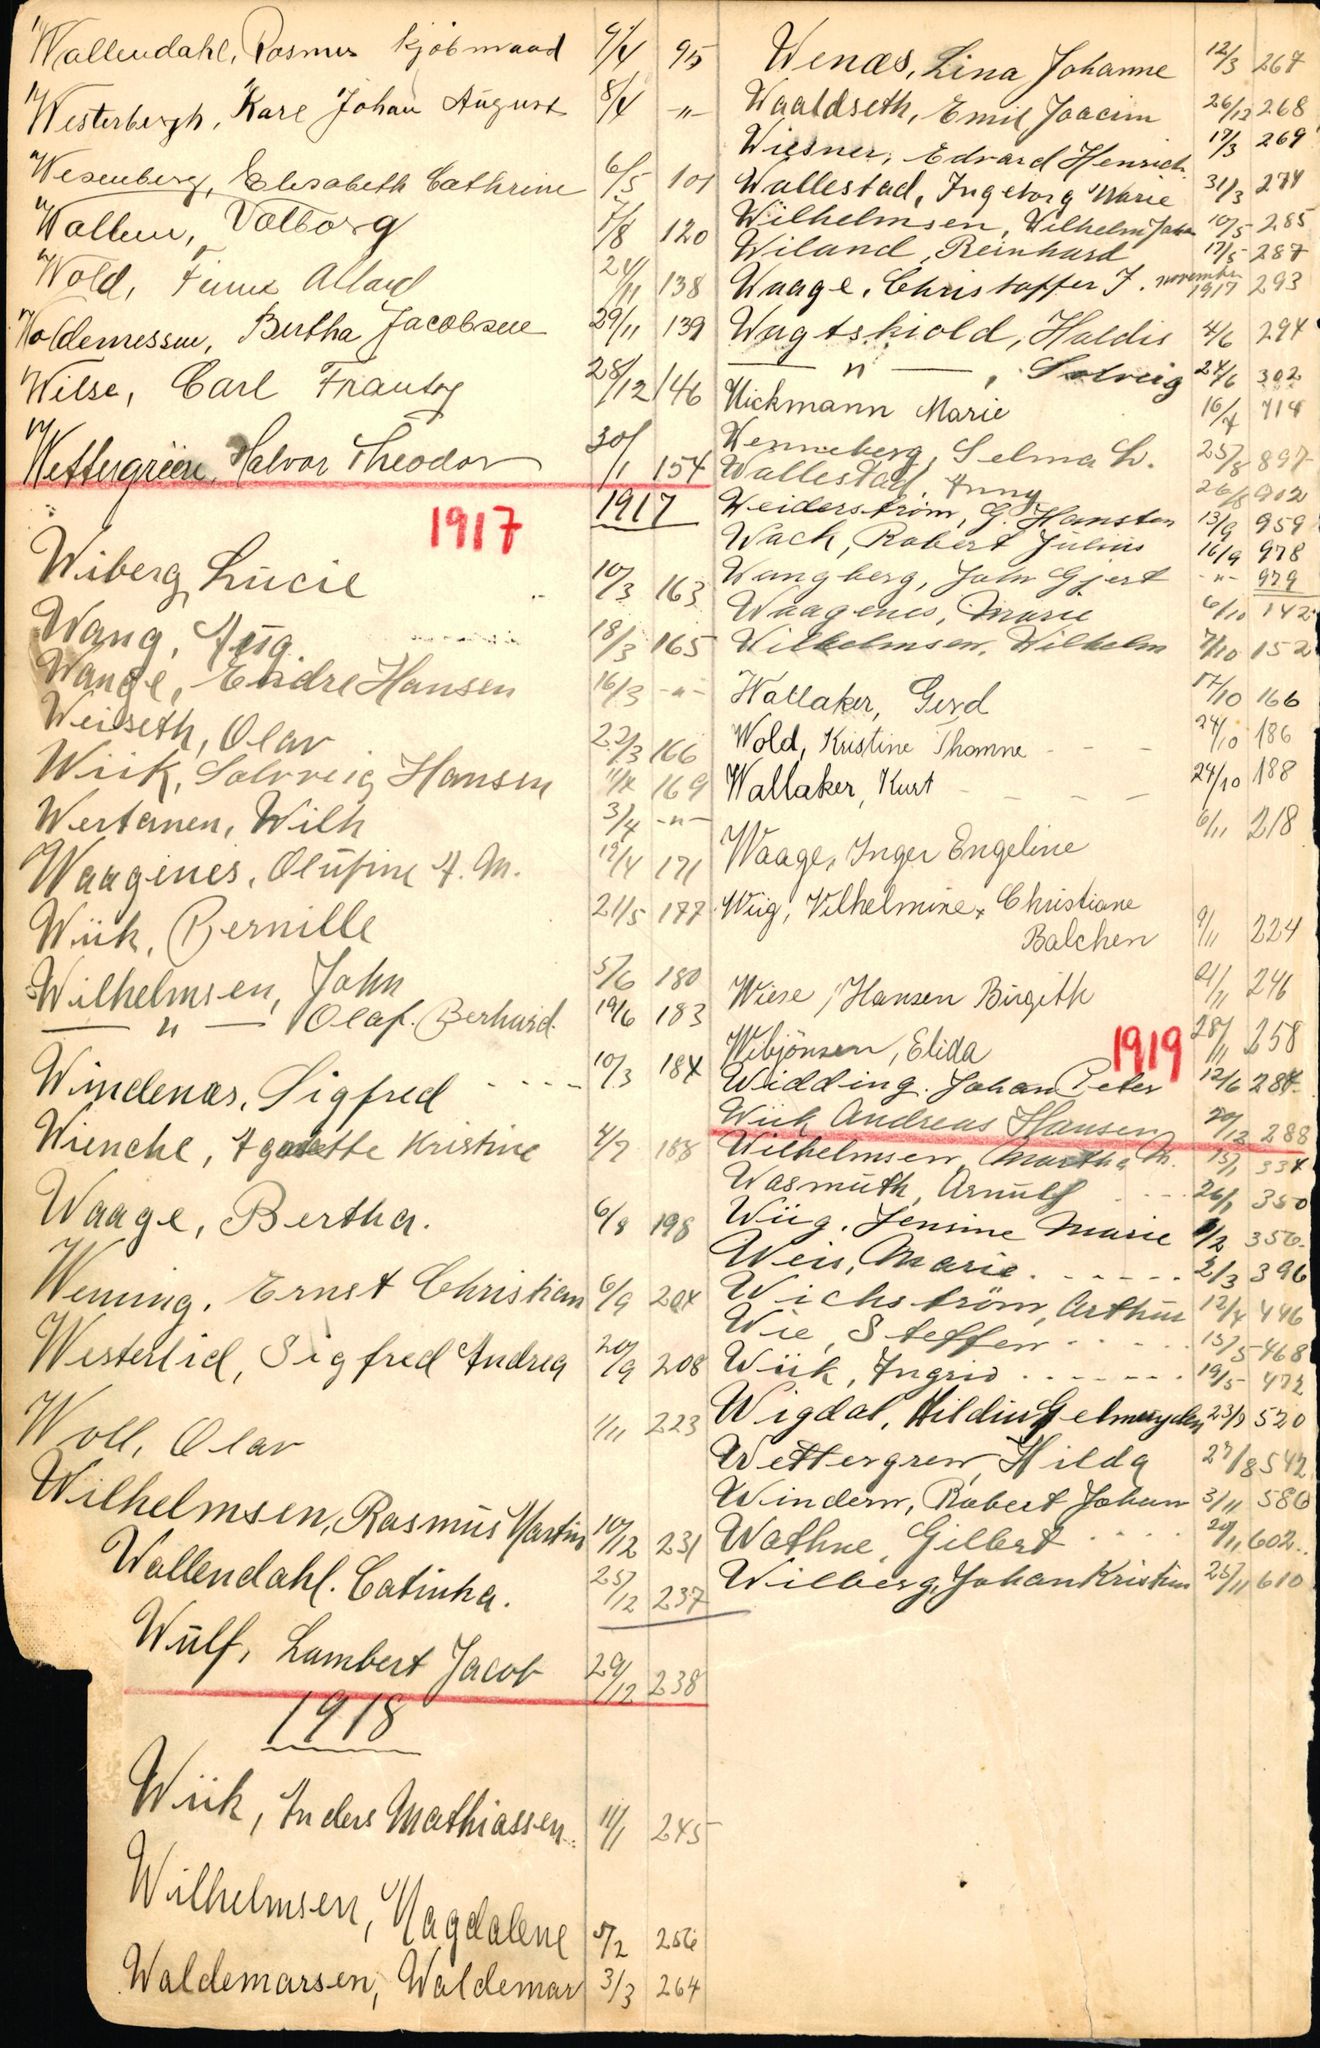 Wallendahl, Rasmus kjøbmand 9/4 95
Westerbergh, Karl Johan August 8/4 -"-
Wesenberg, Elisabeth Cathrine 6/5 101
Wallem, Valborg 7/8 120
Wold, Allard 24/11 138
Woldemessen, Bertha Jacobsen 29/11 139
Wilse, Carl Frantz 28/12 146
Wettergreen, Halvor Theodor 30/1 154
1917 1917
Wiberg, Lucie 10/3 163
Wang, Aug. 18/3 165
Wange, Endre Hansen 16/3 -"-
Weiseth, Olav 22/3 166
Wiik, Solveig Hansen 169
Wertanen, Wilh 3/4 -"-
Waagenes, Olufine A. M. 19/4 171
Wiik, Pernille 21/5 177
Wilhelmsen, John 5/6 180
— " — Olaf. Berhard. 19/6 183
Windenæs, Sigfred 10/3 184
Wienche, Agathe Kristine 4/7 188
Waage, Bertha. 6/8 198
Wenning, Ernst Christian 6/9 204
Westerlid, Sigfred Andrea 20/9 208
Woll, Olav 1/11 223
Wilhelmsen, Rasmus Martin 10/12 231
Wallendahl. Catinka. 25/12 237
Wulf, Lambert Jacob 29/12 238
1918
Wiik, Anders Mathiassen 11/1 245
Wilhelmsen, Magdalene 5/2 256
Waldemarsen, Waldemar 3/3 264
Wenæs, Lina Johanne 12/3 267
Waaldseth, Emil Joacim 26/12 268
Wiesner, Edvard Henrich 17/3 269
Wallestad, Ingeborg Marie 31/3 274
Wilhelmsen, Wilhelm 10/5 285
Wiland, Reinhard 17/5 287
Waage, Christoffer J. november 1917 293
Wagtskiold, Haldis 4/6 294
— " —, Solveig 24/6 302
Wickmann Marie 16/7 714
Wenneberg, Selma L. 25/8 897
Wallestad, Anny 26/8 902
Weiderstrøm, G. Hansten 13/9 959
Wack, Robert Julius 16/9 978
Wangberg, John Gjert -"- 979
Waagenes, Marie 6/10 142
Wilhelmsen, Wilhelm 7/10 152
Wallaker, Gerd 17/10 166
Wold, Kristine Thomine 24/10 186
Wallaker, Kurt 24/10 188
Waage, Inger Engeline 6/11 218
Wiig, Vilhelmine Christiane
Balchen 9/11 224
Wiese, Hansen Birgith 21/11 246
Wibjönsen, Elida 28/11 258
1919
Widding, Johan Peter 12/6 284
Wiik Andreas Hansen 20/12 288
Wilhelmsen, Martha M. 15/1 334
Wasmuth, Arnulf 26/1 350
Wiig, Jensine Marie 9/2 356
Weis, Marie 2/3 396
Wichström, Arthur 12/4 446
Wie, Steffen 15/5 468
Wiik, Ingrid 19/5 472
Wigdal, Hildus Gelmuyden 23/7 520
Wettergren, Hilda 27/8 542
Windern, Robert Johan 3/11 586
Wathne, Gilbert 20/11 602
Wilberg, Johan Kristian 25/11 610